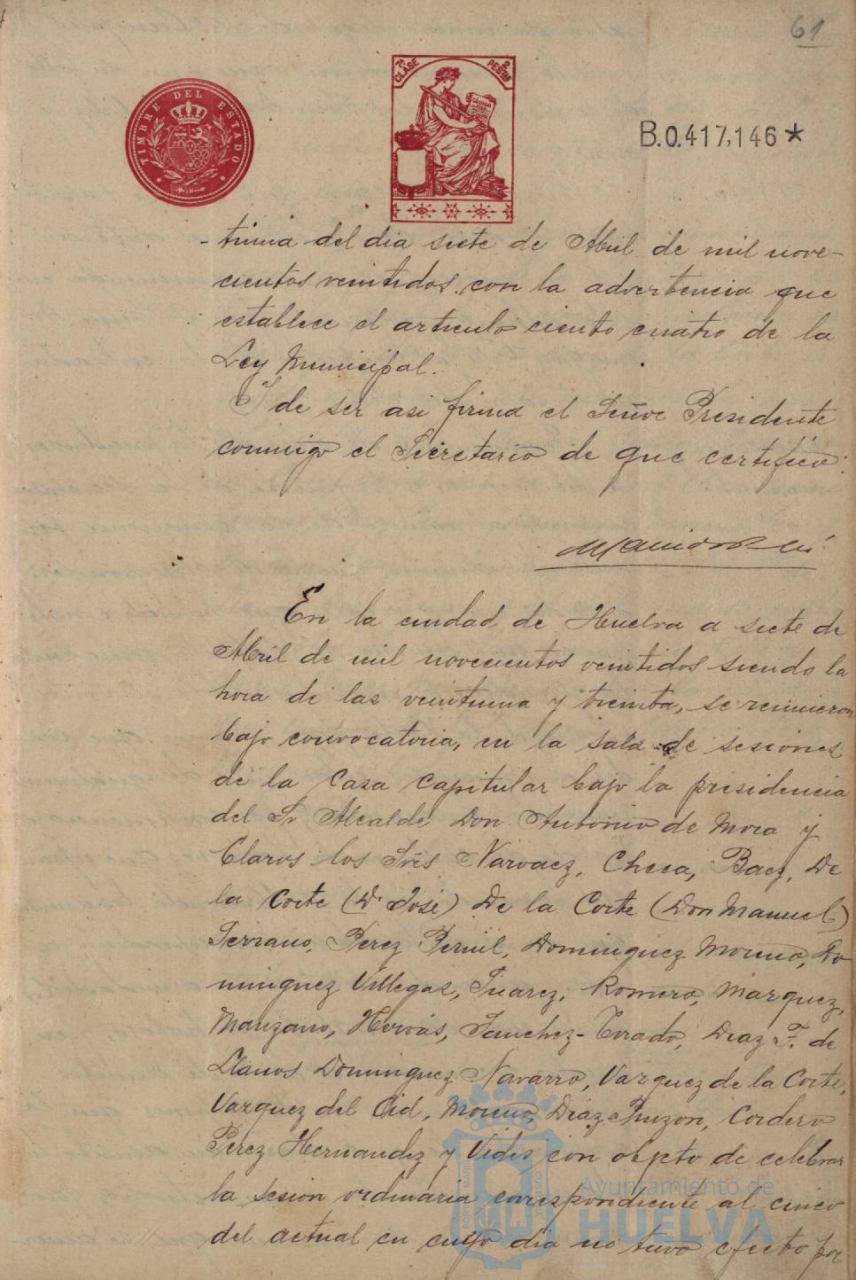 61
TIMBRE DEL ESTADO
7ª CLASE
PESETAS
B.0.417,146*
-tiuna del dia siete de Abril de mil nove-
cientos veintidos con la advertencia que
establece el articulo ciento cuatro de la
Ley Municipal.
Y de ser asi firma el Señor Presidente
conmigo el Secretario de que certifico.
En la ciudad de Huelva a siete de
Abril de mil novecientos veintidos siendo la
hora de las veintiuna y treinta, se reunieron
bajo convocatoria, en la sala de sesiones
de la Casa Capitular bajo la presidencia
del Sr Alcalde Don Antonio de Mora y
Claros los Sres Narvaez, Checa, Baez, De
la Corte (D. José) De la Corte (Don Manuel)
Serrano, Perez Pernil, Dominguez Moreno, Do-
minguez Villegas, Suarez, Romero, Marquez,
Manzano, Hervás, Sanchez-Tirado, Diaz F. de
Llanos Dominguez Navarro, Vazquez de la Corte,
Vazquez del Cid, Moreno, Diaz Pinzon, Cordero
Perez Hernandez y Vides con objeto de celebrar
la sesion ordinaria correspondiente al cinco
del actual en cuyo dia no tuvo efecto por
Ayuntamiento de
HUELVA